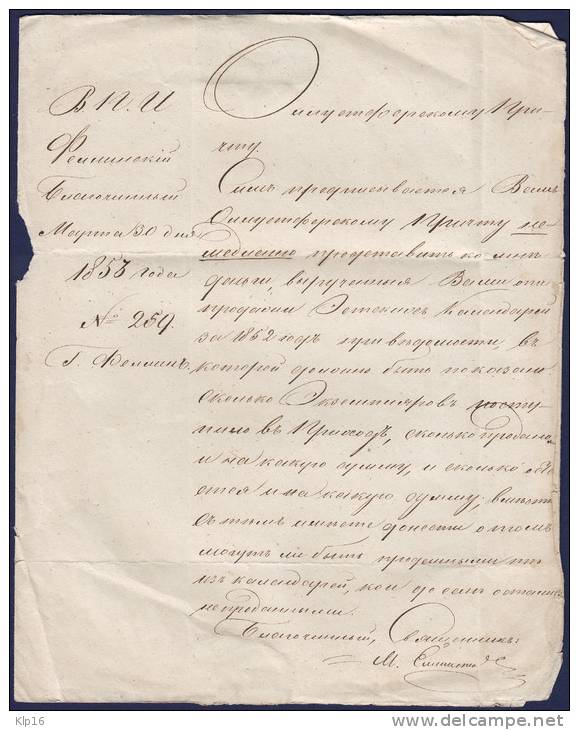 В. П. И
Феллинскій
Благочинный
Марта 30 дня
1853 года
№ 259.
Г. Феллинъ.
Оллустферскому При-
чту.
Симъ предписывается Вамъ
Оллустферскому Причту не-
медленно представить ко мнѣ
деньги, вырученныя Вами отъ
продажи Эстскихъ Календарей
за 1852 годъ при вѣдомости, въ
которой должно быть показано
сколько Экземпляровъ посту
пило въ Приходъ, сколько продано
и на какую сумму, и сколько ос
тся и на какую сумму; вмѣстѣ
съ тѣмъ имѣете донести о томъ
могутъ ли быть проданными тѣ
изъ календарей, кои до селѣ остались
непроданными.
Благочинный, Священникъ:
М.
Klp16
www.delcampe.net